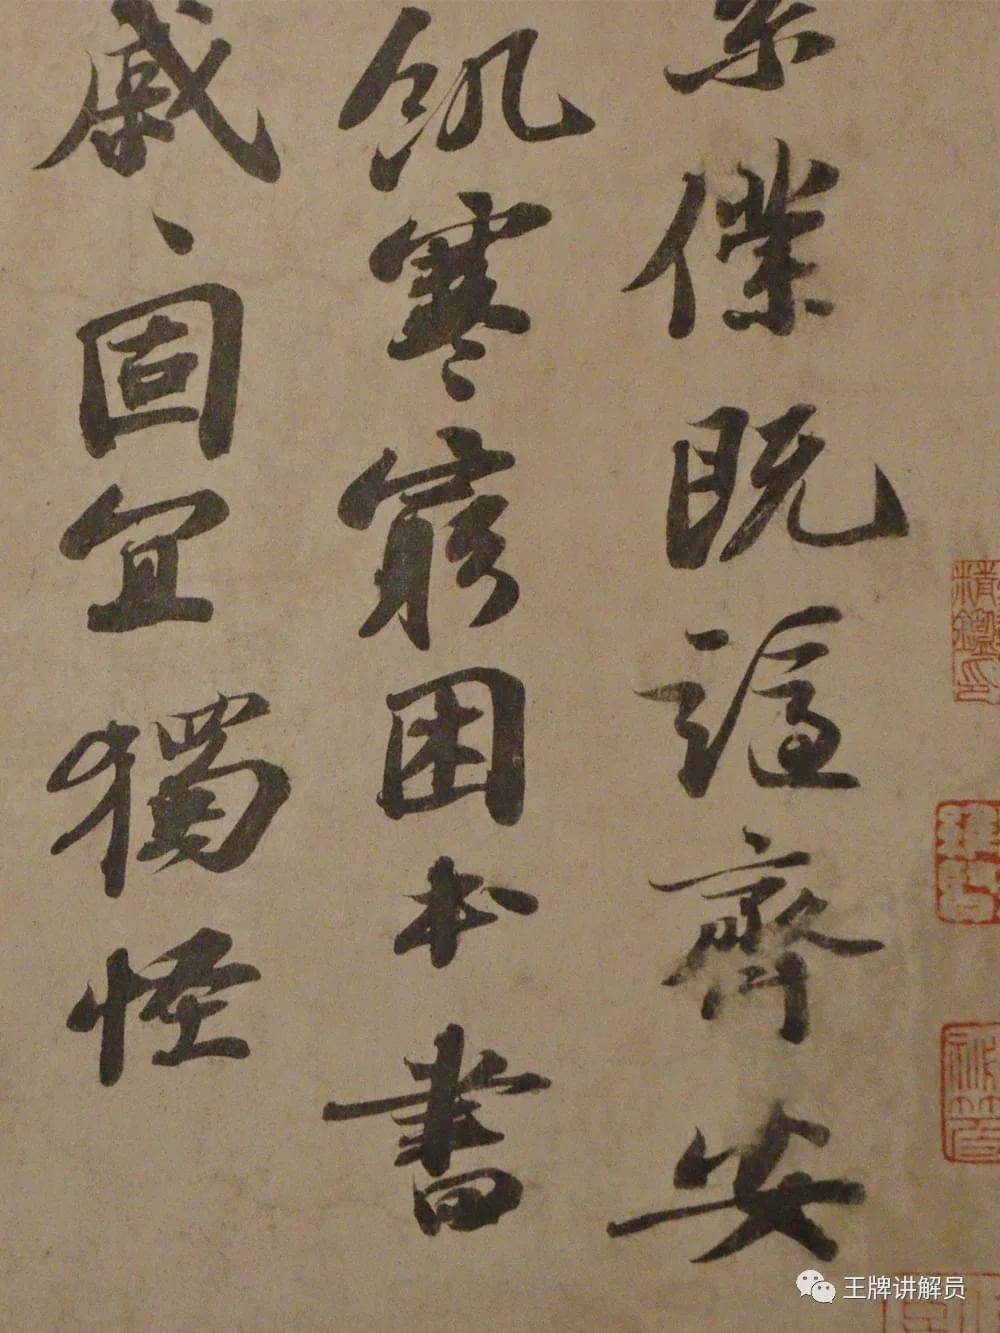 僕既讁齊安
飢寒窮困本書
戚〻固宜獨怪
王牌讲解员